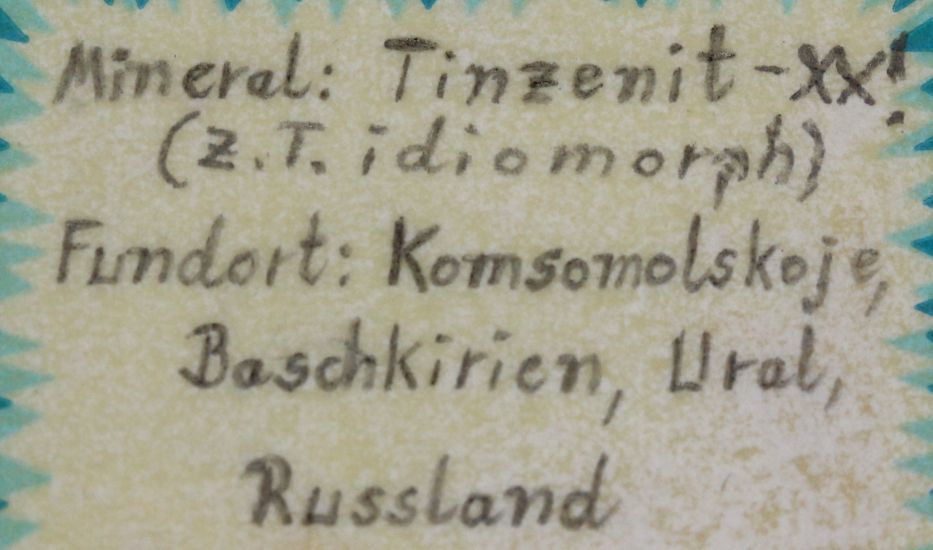 Mineral: Tinzenit-XX!
(z.T. idiomorph)
Fundort: Komsomolskoje,
Baschkirien, Ural,
Russland